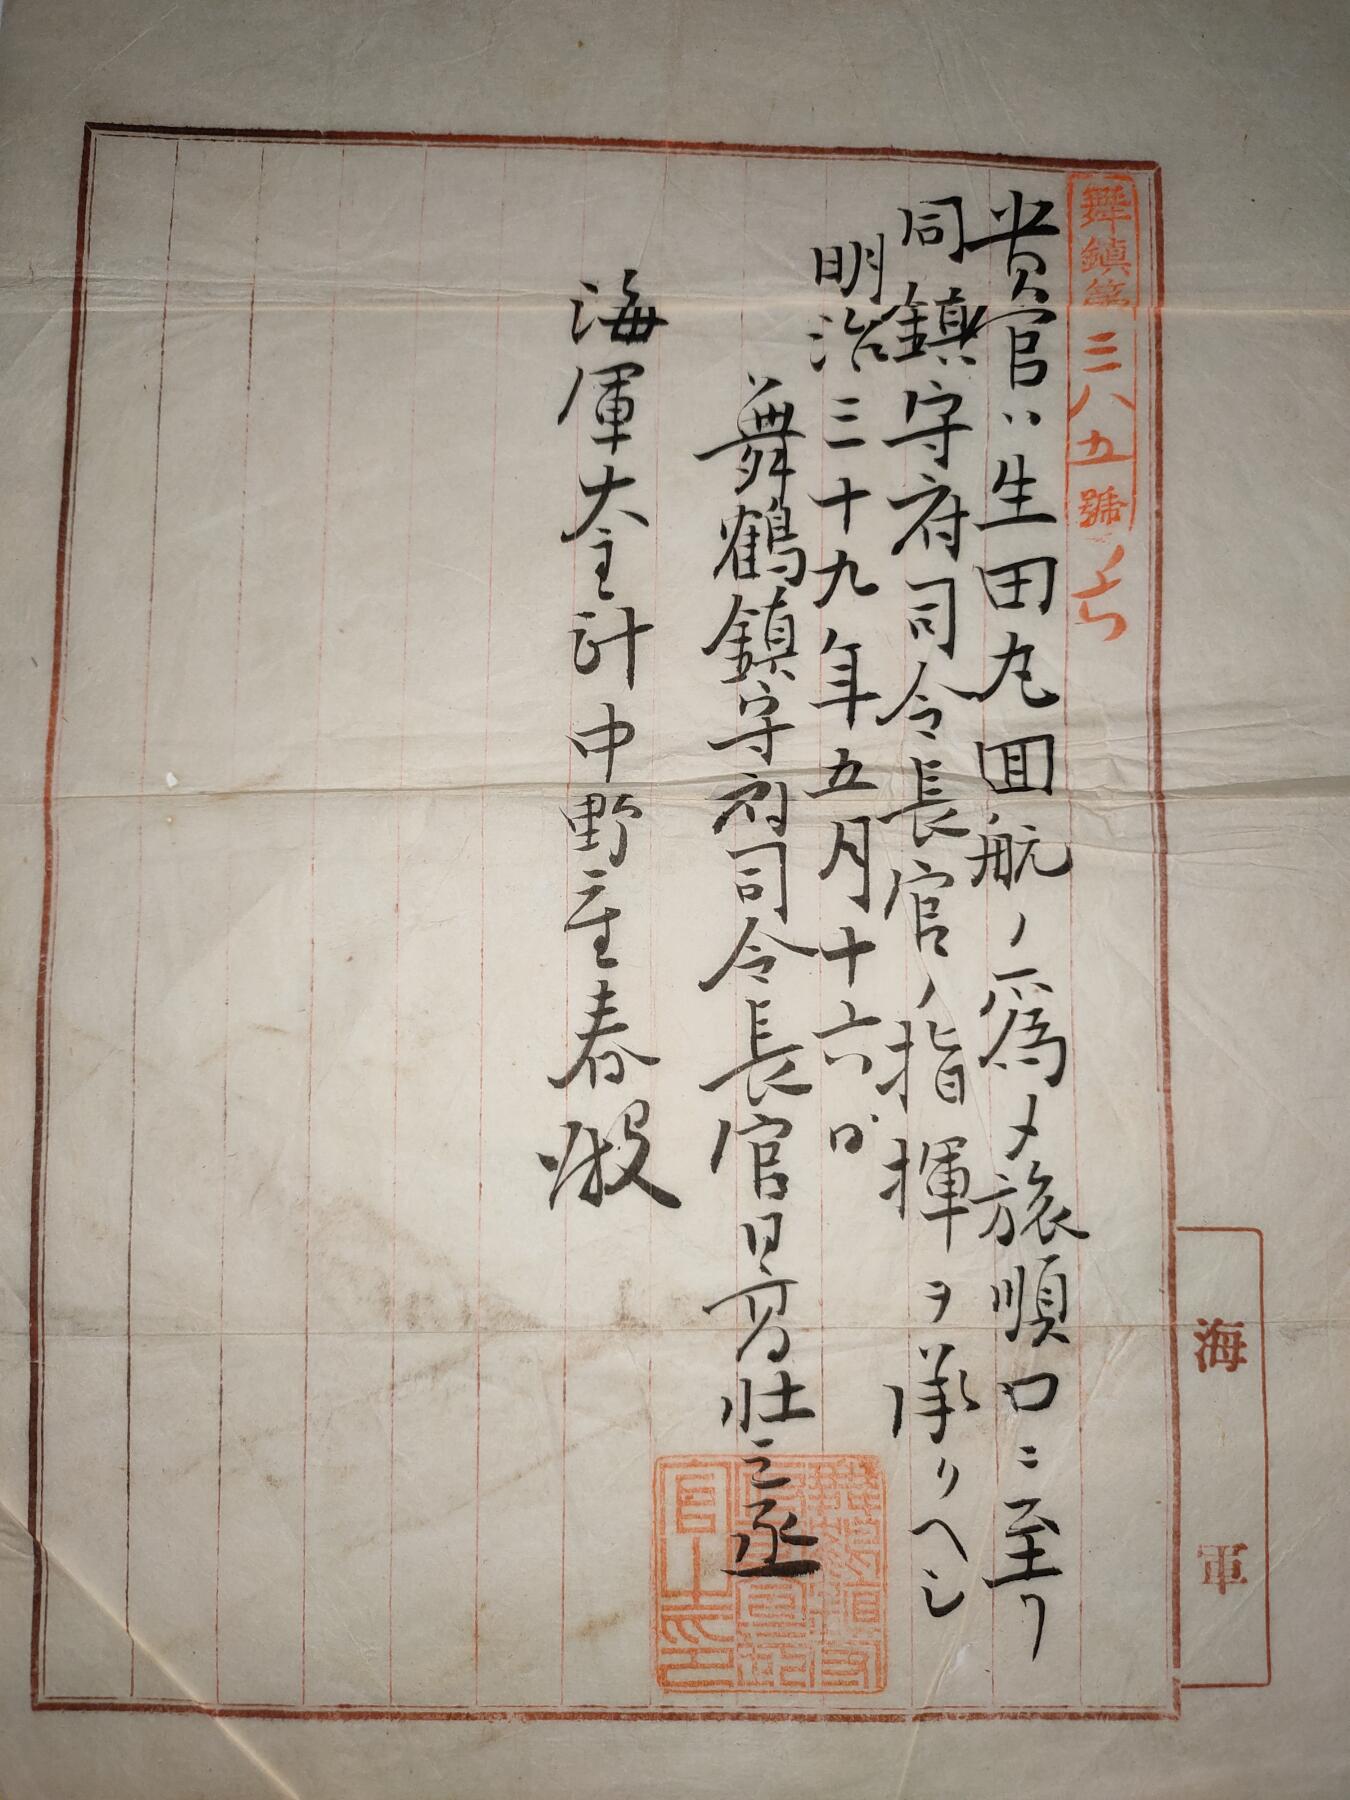 舞鎮第三八五號ノ七
貴官ハ生田丸囬航ノ爲メ旅順口ニ至リ
同鎮守府司令長官ノ指揮ヲ承リヘシ
明治三十九年五月十六日
舞鶴鎮守府司令長官日髙壯之丞
海軍大主計中野重春殿
海軍